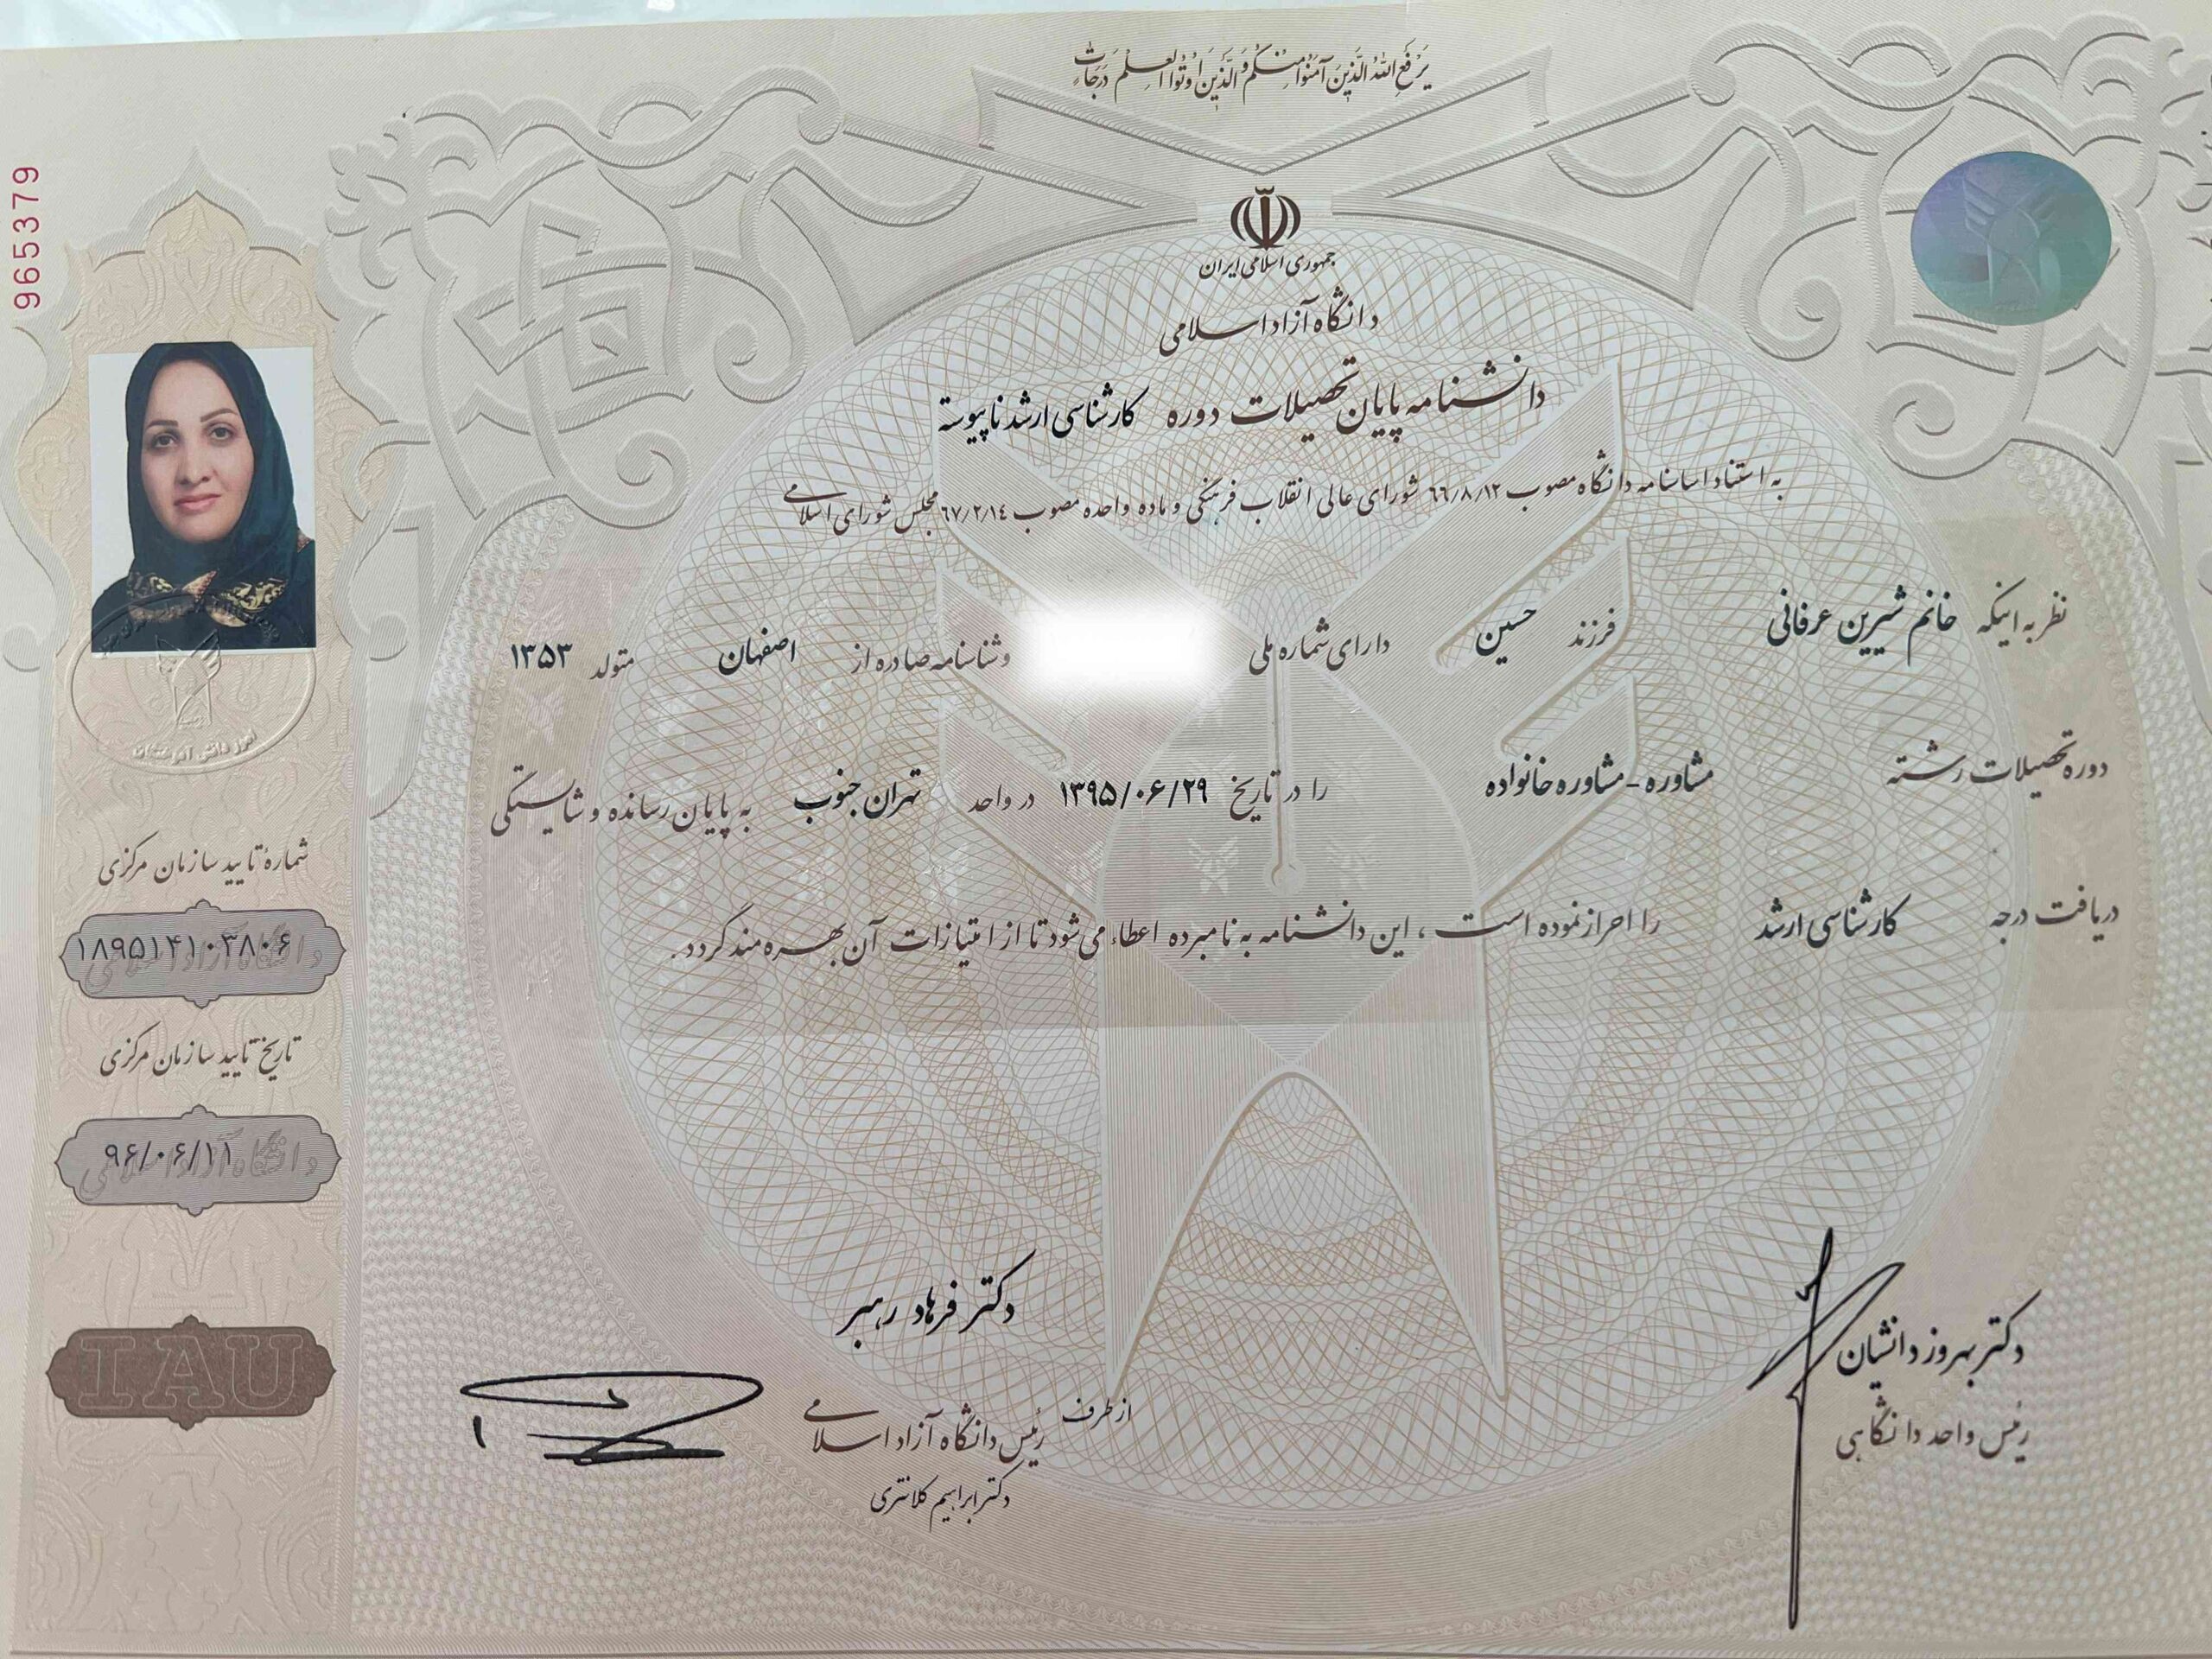 یَرْفَعِ اللهُ الَّذینَ آمَنُوا مِنْکُمْ وَ الَّذینَ اُوتُوا العِلْمَ دَرَجاتٍ
965379
جمهوری اسلامی ایران
دانشگاه آزاد اسلامی
دانشنامه پایان تحصیلات دوره کارشناسی ارشد ناپیوسته
به استناد اساسنامه دانشگاه مصوب ۶۶/۸/۱۲ شورای عالی انقلاب فرهنگی و ماده واحده مصوب ۶۷/۲/۱۴ مجلس شورای اسلامی
نظر به اینکه خانم شیرین عرفانی فرزند حسین دارای شماره ملی و شناسنامه صادره از اصفهان متولد ۱۳۵۳
دوره تحصیلات رشته مشاوره - مشاوره خانواده را در تاریخ ۱۳۹۵/۰۶/۲۹ در واحد تهران جنوب به پایان رسانده و شایستگی
دریافت درجه کارشناسی ارشد را احراز نموده است ، این دانشنامه به نامبرده اعطاء می شود تا از امتیازات آن بهره مند گردد.
امور دانش آموختگان
شماره تایید سازمان مرکزی
۱۸۹۵۱۴۱۰۳۸۰۶
تاریخ تایید سازمان مرکزی
۹۶/۰۶/۱۱
IAU
دکتر بهروز دانشیان
رئیس واحد دانشگاهی
دکتر فرهاد رهبر
از طرف رئیس دانشگاه آزاد اسلامی
دکتر ابراهیم کلانتری